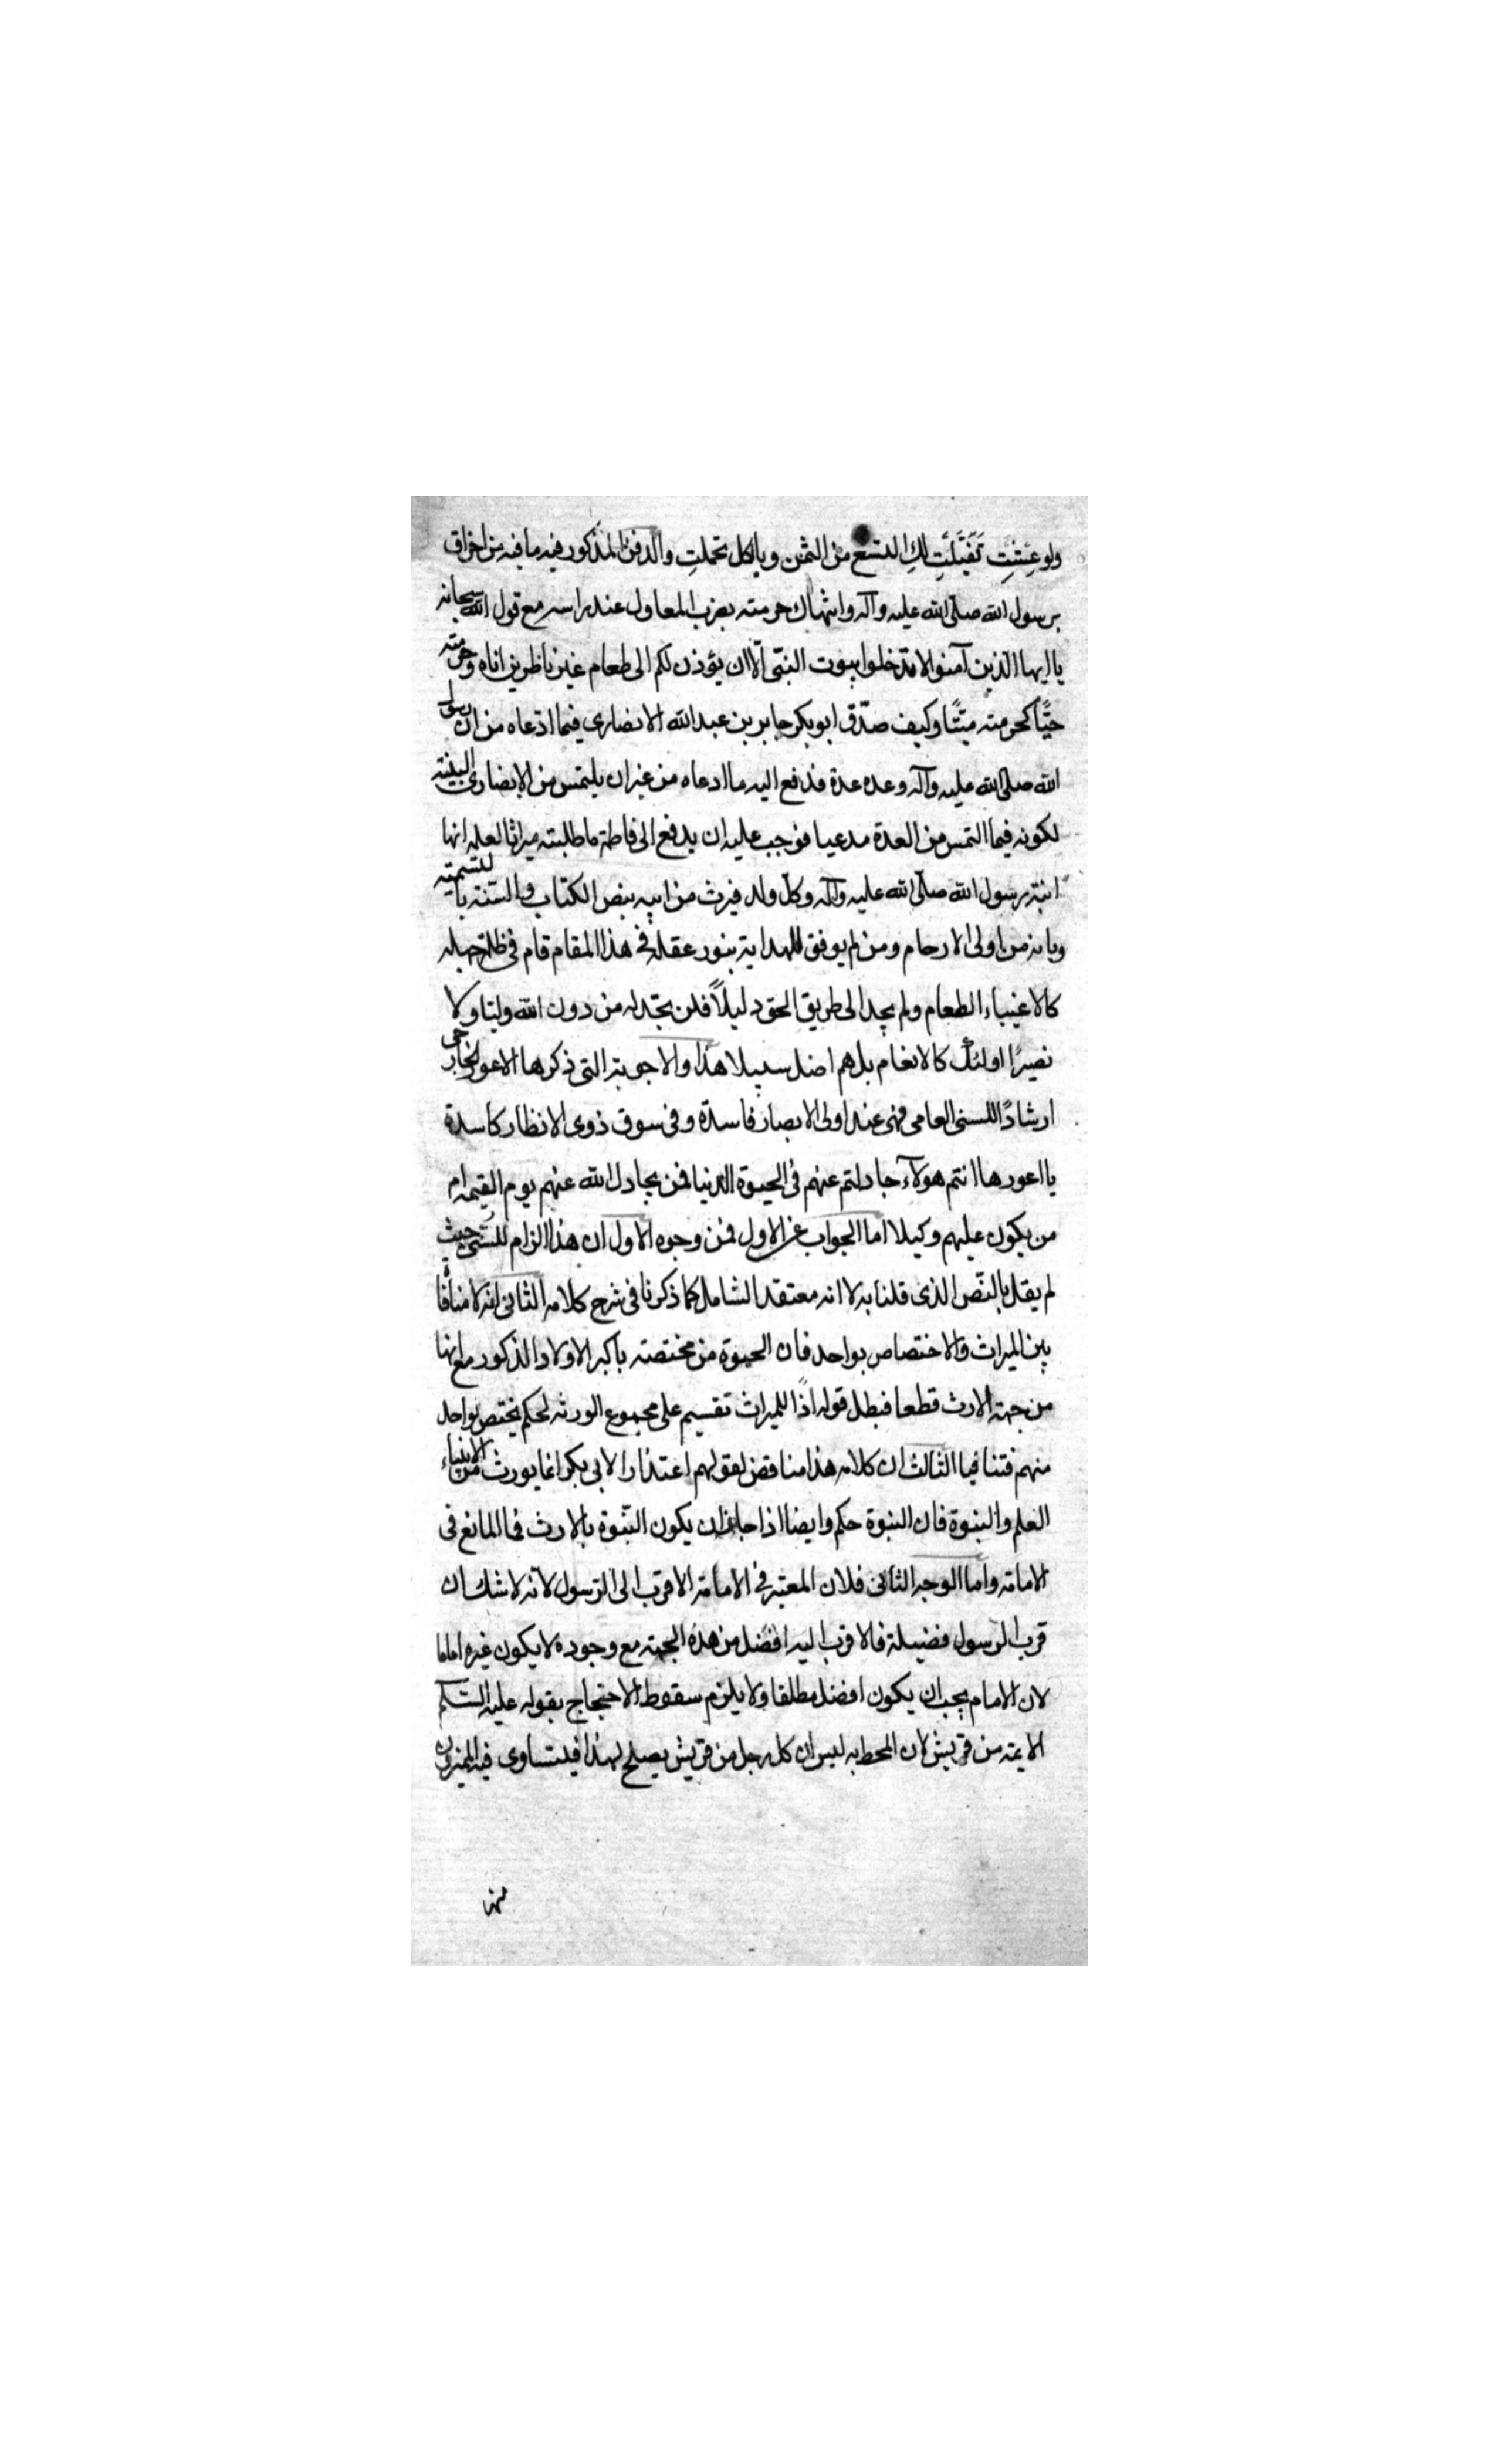 ولو عِشتِ تَفَيَّلتِ لكِ التسع من الثمن وبالكل تحملتِ والدفن المذكور فيه ما فيه من اخراق
برسول الله صلى الله عليه وآله وانتهاك حرمته بضرب المعاول عند راسه مع قول الله سبحانه
يا ايها الذين آمنوا لا تدخلوا بيوت النبي الا ان يؤذن لكم الى طعام غير ناظرين اناه وحرمته
حيًّا كحرمته ميتًا وكيف صدّق ابو بكر جابر بن عبد الله الانصاري فيما ادّعاه من ان رسول
الله صلى الله عليه وآله وعده عدة فدفع اليه ما ادعاه من غير ان يلتمس من الانصاري البينة
لكونه فيما التمس من العدة مدعيا فوجب عليه ان يدفع الى فاطمة ما طلبته ميراثا لعلمه انها
ابنة رسول الله صلى الله عليه وآله وكل ولد فيرث من ابيه بنص الكتاب والسنة بالتسمية
وبانه من اولى الارحام ومن لم يوفق للهداية بنور عقله في هذا المقام قام في ظلمة جهله
كالاغبياء الطعام ولم يجد الى طريق الحق دليلاً فلن تجد له من دون الله وليا ولا
نصيرًا اولئك كالانعام بل هم اضل سبيلا هذا والاجوبة التي ذكرها الاعور الخارجى
ارشادًا للسنى العامى فهى عند اولى الابصار فاسدة وفى سوق ذوى الانظار كاسدة
يا اعور ها انتم هولآء جادلتم عنهم فى الحيوة الدنيا فمن يجادل الله عنهم يوم القيمه ام
من يكون عليهم وكيلا اما الجواب عن الاول فمن وجوه الاول ان هذا الزام للسنى حيث
لم يقل بالنّص الذى قلنا به لا انه معتقد الشامل كما ذكرنا فى شرح كلامه الثانى انه لا منافاة
بين الميراث والاختصاص بواحد فان الحبوة من مختصته باكبر الاولاد الذكور مع انها
من جهة الارث قطعا فبطل قوله اذًا للميراث تقسيم على مجموع الورثه لحكم يختص بواحد
منهم فتنافيا الثالث ان كلامه هذا مناقض لقولهم اعتذارا لابى بكر انما يورث من الانبياء
العلم والنبوة فان النبوة حكم وايضا اذا جاز ان يكون النبّوة بالارث فما المانع فى
الامامة واما الوجه الثانى فلان المعتبر فى الامامة الاقرب الى الرسول لانه لا شك ان
قرب الرسول فضيلة فالاقرب اليه افضل من هذه الجهته مع وجوده لا يكون غيره اماما
لان الامام يجب ان يكون افضل مطلقا ولا يلزم سقوط الاحتجاج بقوله عليه السّلام
الائمة من قريش لان المحط به ليس ان كل رجل من قريش يصلح لهذا فيتساوى فيه